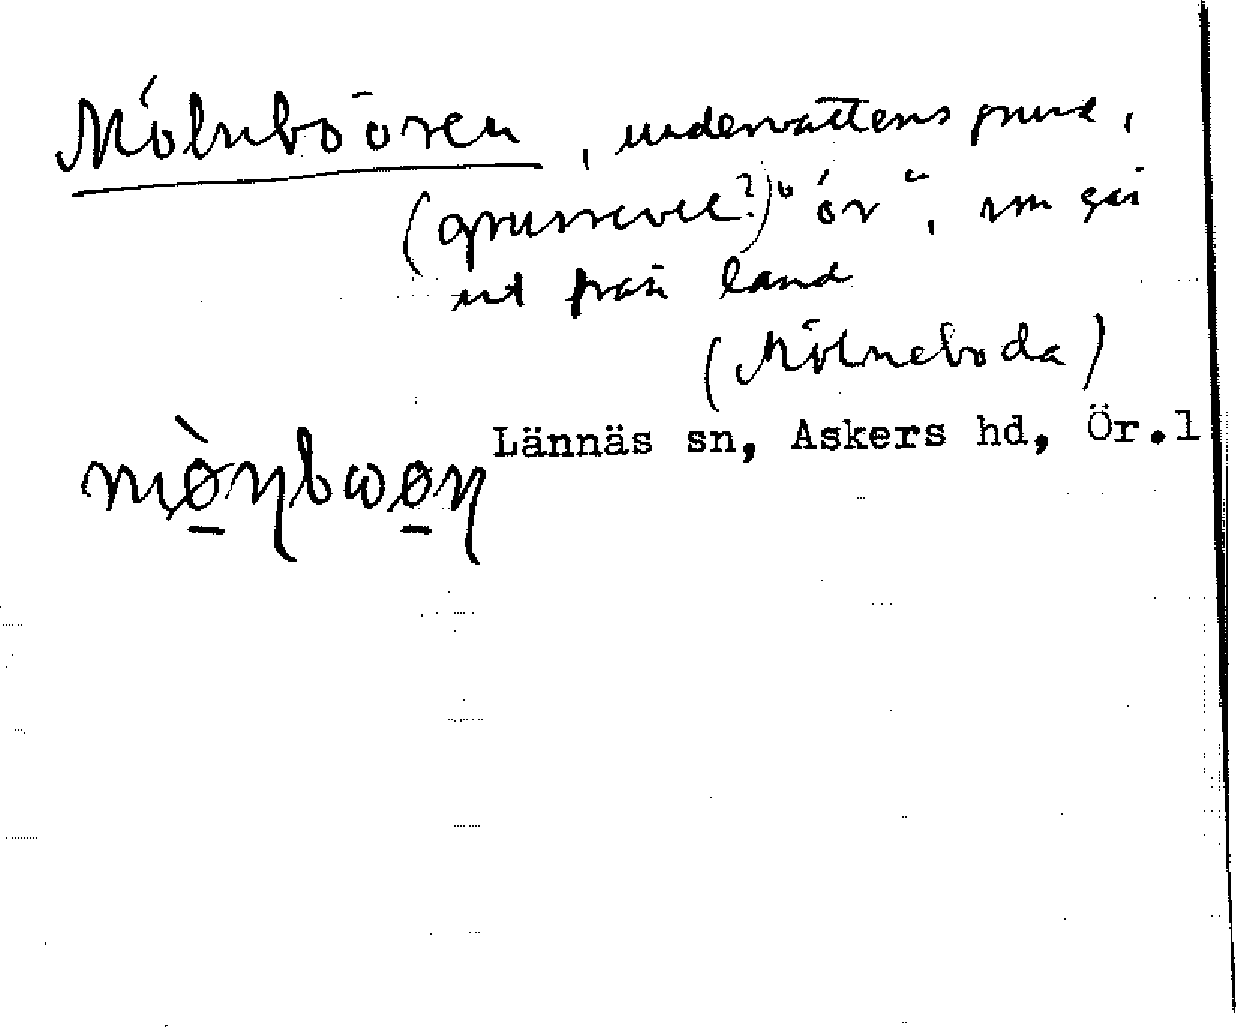 Mölnboören, undervattensgrund,
(grusrevel?) "ör", som går
ut från land
(Mölneboda)
Lännäs sn, Askers hd, Ör.l